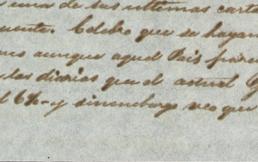 una de sus ultimas carta
Celebro que se hayan
aunque aquel Pais
las diarias que el actual
y sin embargo veo que